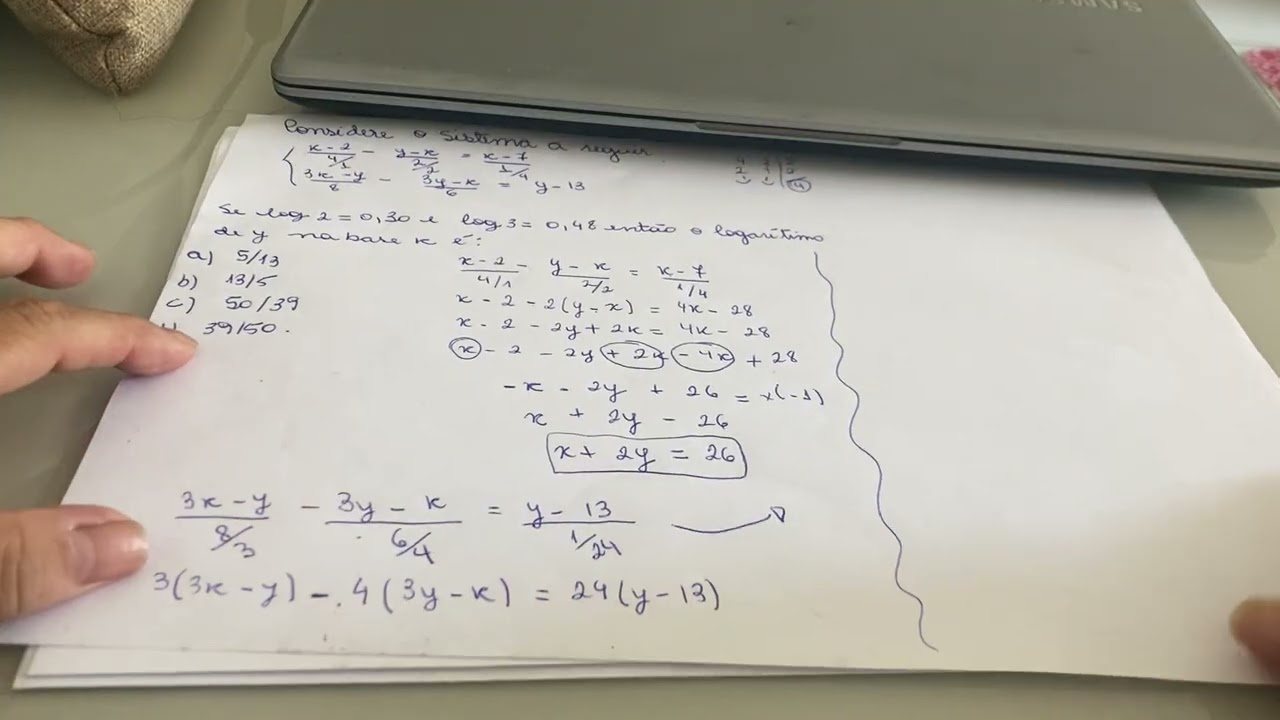 SAMS
Considere o sistema a seguir.
{ x-2/4/1 - y-x/2/2 = x-7/1/4
3x-y/8 - 3y-x/6 = y-13
4 2 1
2
4
Se log 2 = 0,30 e log 3 = 0,48 então o logarítimo
de y na base x é:
a) 5/13
b) 13/5
c) 50/39
39/50.
x-2/4/1 - y-x/2/2 = x-7/1/4
x - 2 - 2(y-x) = 4x - 28
x - 2 - 2y + 2x = 4x - 28
x - 2 - 2y + 2x - 4x + 28
-x - 2y + 26 = x(-1)
x + 2y - 26
x + 2y = 26
3x-y/8/3 - 3y-x/6/4 = y-13/1/24
3(3x-y) - 4(3y-x) = 24(y-13)